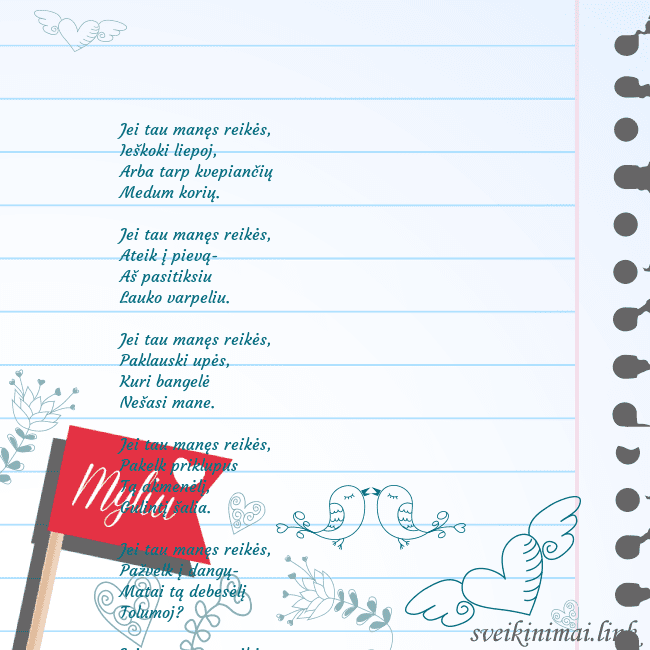 Jei tau manęs reikės,
Ieškoki liepoj,
Arba tarp kvepiančių
Medum korių.
Jei tau manęs reikės,
Ateik į pievą-
Aš pasitiksiu
Lauko varpeliu.
Jei tau manęs reikės,
Paklauski upės,
Kuri bangelė
Nešasi mane.
Jei tau manęs reikės,
Pakelk priklupus
Tą akmenėlį,
Gulintį šalia.
Jei tau manęs reikės,
Pažvelk į dangų-
Matai tą debesėlį
Tolumoj?
Myliu
sveikinimai.link